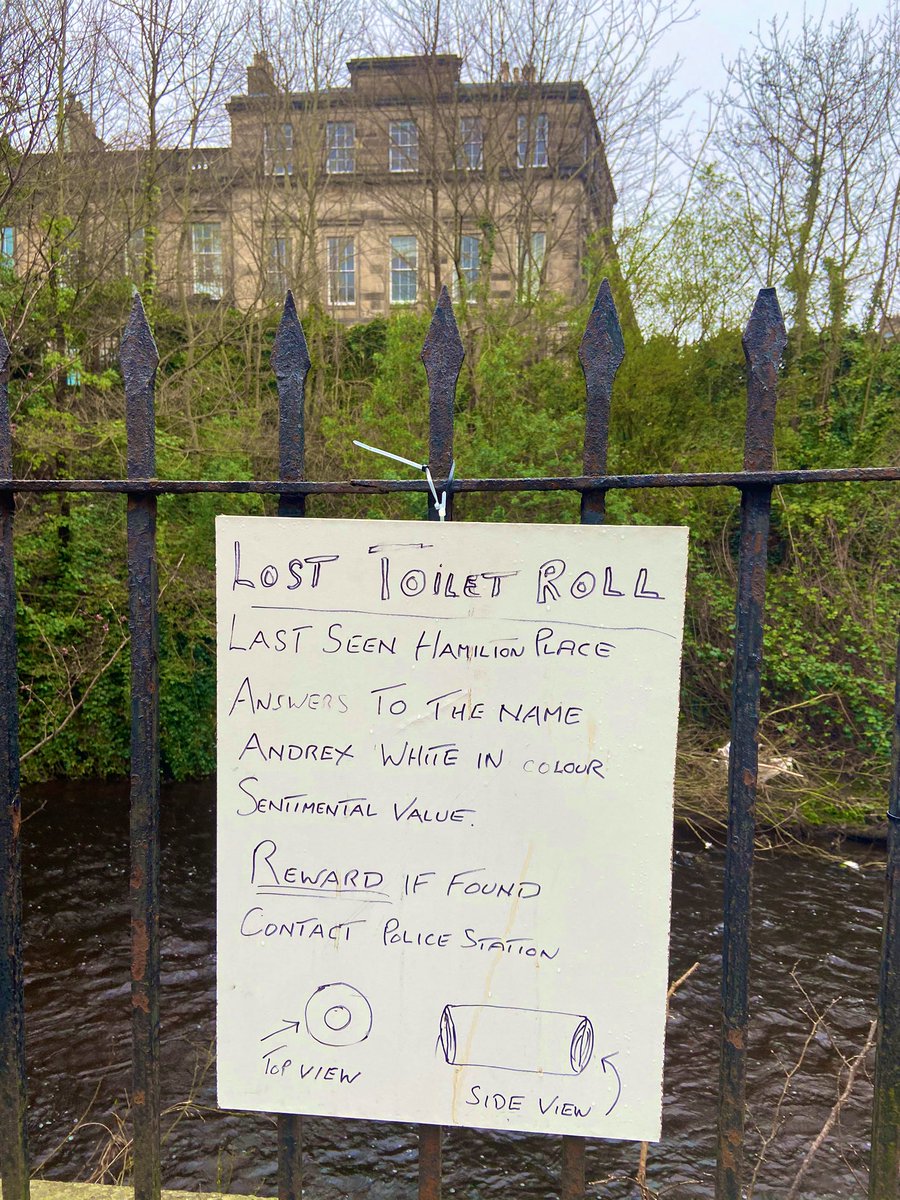 LOST TOILET ROLL
LAST SEEN HAMILTON PLACE
ANSWERS TO THE NAME
ANDREX WHITE IN COLOUR
SENTIMENTAL VALUE.
REWARD IF FOUND
CONTACT POLICE STATION
TOP VIEW
SIDE VIEW